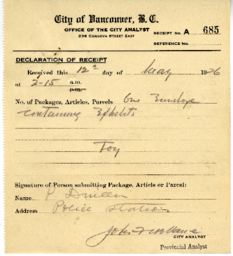 City of Vancouver, B.C.
OFFICE OF THE CITY ANALYST
236 CORDOVA STREET EAST
RECEIPT No. A 685
REFERENCE No.
DECLARATION OF RECEIPT
Received this 12th day of May 1926
at 2-15 a.m. p.m.
No. of Packages, Articles, Parcels One Envelope
containing Exhibits
Foy
Signature of Person submitting Package, Article or Parcel:
Name
Address Police Station
CITY ANALYST
Provincial Analyst